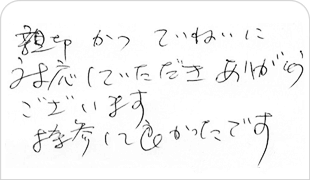 親切 かつ ていねいに
対応していただき ありがとう
ございます
持参して良かったです